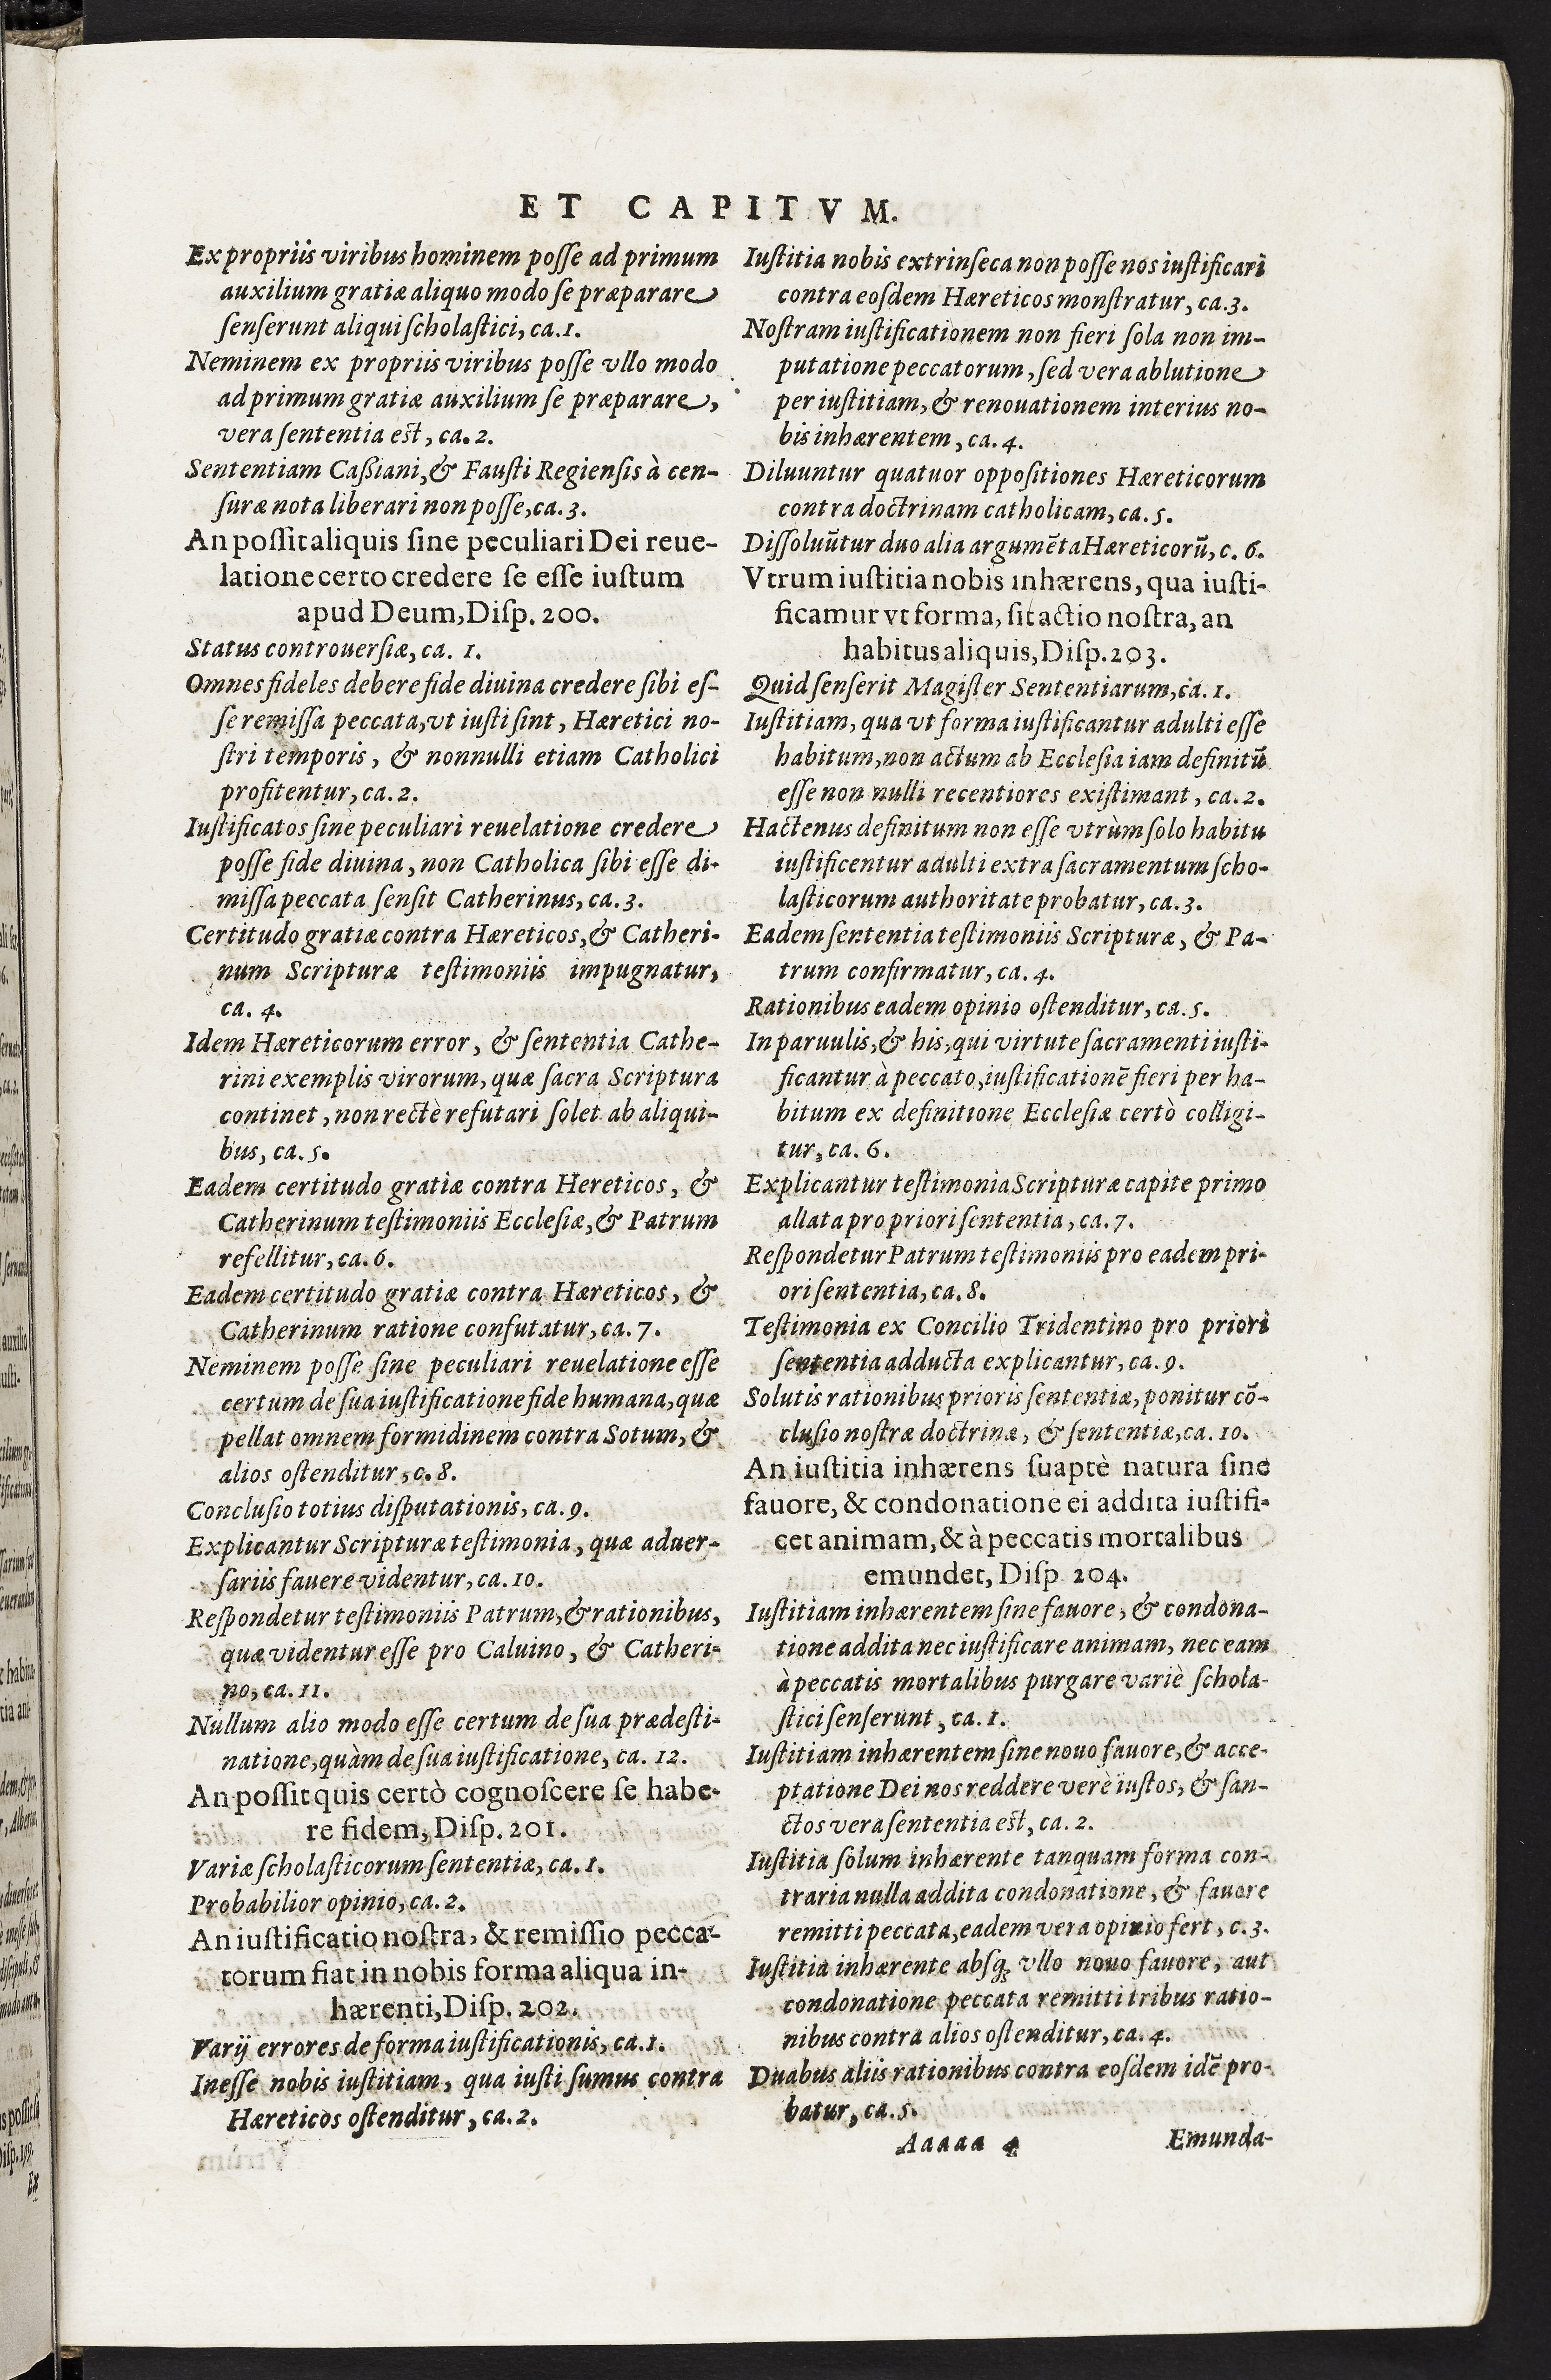 ET CAPITVM.
Ex propriis viribus hominem posse ad primum
auxilium gratiæ aliquo modo se præparare
senserunt aliqui scholastici, ca.1.
Neminem ex propriis viribus posse vllo modo
ad primum gratiæ auxilium se præparare,
vera sententia est, ca. 2.
Sententiam Caßiani, & Fausti Regiensis à cen-
suræ nota liberari non posse, ca. 3.
An possit aliquis sine peculiari Dei reue-
latione certo credere se esse iustum
apud Deum, Disp. 200.
Status controuersiæ, ca. 1.
Omnes fideles debere fide diuina credere sibi es-
se remissa peccata, vt iusti sint, Hæretici no-
stri temporis, & nonnulli etiam Catholici
profitentur, ca. 2.
Iustificatos sine peculiari reuelatione credere
posse fide diuina, non Catholica sibi esse di-
missa peccata sensit Catherinus, ca. 3.
Certitudo gratiæ contra Hæreticos, & Catheri-
num Scripturæ testimoniis impugnatur,
ca. 4.
Idem Hæreticorum error, & sententia Cathe-
rini exemplis virorum, quæ sacra Scriptura
continet, non rectè refutari solet ab aliqui-
bus, ca. 5.
Eadem certitudo gratiæ contra Hereticos, &
Catherinum testimoniis Ecclesiæ, & Patrum
refellitur, ca. 6.
Eadem certitudo gratiæ contra Hæreticos, &
Catherinum ratione confutatur, ca. 7.
Neminem posse sine peculiari reuelatione esse
certum de sua iustificatione fide humana, quæ
pellat omnem formidinem contra Sotum, &
alios ostenditur, c. 8.
Conclusio totius disputationis, ca. 9.
Explicantur Scripturæ testimonia, quæ aduer-
sariis fauere videntur, ca. 10.
Respondetur testimoniis Patrum, & rationibus,
quæ videntur esse pro Caluino, & Catheri-
no, ca. 11.
Nullum alio modo esse certum de sua prædesti-
natione, quàm de sua iustificatione, ca. 12.
An possit quis certò cognoscere se habe-
re fidem, Disp. 201.
Variæ scholasticorum sententiæ, ca. 1.
Probabilior opinio, ca. 2.
An iustificatio nostra, & remissio pecca-
torum fiat in nobis forma aliqua in-
hærenti, Disp. 202.
Varij errores de forma iustificationis, ca.1.
Inesse nobis iustitiam, qua iusti sumus contra
Hæreticos ostenditur, ca. 2.
Iustitia nobis extrinseca non posse nos iustificari
contra eosdem Hæreticos monstratur, ca.3.
Nostram iustificationem non fieri sola non im-
putatione peccatorum, sed vera ablutione
per iustitiam, & renouationem interius no-
bis inhærentem, ca. 4.
Diluuntur quatuor oppositiones Hæreticorum
contra doctrinam catholicam, ca. 5.
Dissoluūtur duo alia argumēta Hæreticorū, c. 6.
Vtrum iustitia nobis inhærens, qua iusti-
ficamur vt forma, sit actio nostra, an
habitus aliquis, Disp. 203.
Quid senserit Magister Sententiarum, ca. 1.
Iustitiam, qua vt forma iustificantur adulti esse
habitum, non actum ab Ecclesia iam definitū
esse non nulli recentiores existimant, ca. 2.
Hactenus definitum non esse vtrùm solo habitu
iustificentur adulti extra sacramentum scho-
lasticorum authoritate probatur, ca. 3.
Eadem sententia testimoniis Scripturæ, & Pa-
trum confirmatur, ca. 4.
Rationibus eadem opinio ostenditur, ca. 5.
In paruulis, & his, qui virtute sacramenti iusti-
ficantur à peccato, iustificationē fieri per ha-
bitum ex definitione Ecclesiæ certò colligi-
tur, ca. 6.
Explicantur testimonia Scripturæ capite primo
allata pro priori sententia, ca. 7.
Respondetur Patrum testimoniis pro eadem pri-
ori sententia, ca. 8.
Testimonia ex Concilio Tridentino pro priori
sententia adducta explicantur, ca. 9.
Solutis rationibus prioris sententiæ, ponitur cō-
clusio nostræ doctrinæ, & sententiæ, ca. 10.
An iustitia inhærens suaptè natura sine
fauore, & condonatione ei addita iustifi-
cet animam, & à peccatis mortalibus
emundet, Disp 204.
Iustitiam inhærentem sine fauore, & condona-
tione addita nec iustificare animam, nec eam
à peccatis mortalibus purgare variè schola-
stici senserunt, ca. 1.
Iustitiam inhærentem sine nouo fauore, & acce-
ptatione Dei nos reddere verè iustos, & san-
ctos vera sententia est, ca. 2.
Iustitia solum inhærente tanquam forma con-
traria nulla addita condonatione, & fauore
remitti peccata, eadem vera opinio fert, c. 3.
Iustitia inhærente absq; vllo nouo fauore, aut
condonatione peccata remitti tribus ratio-
nibus contra alios ostenditur, ca. 4.
Duabus aliis rationibus contra eosdem idē pro-
batur, ca. 5.
Aaaaa 4 Emunda-